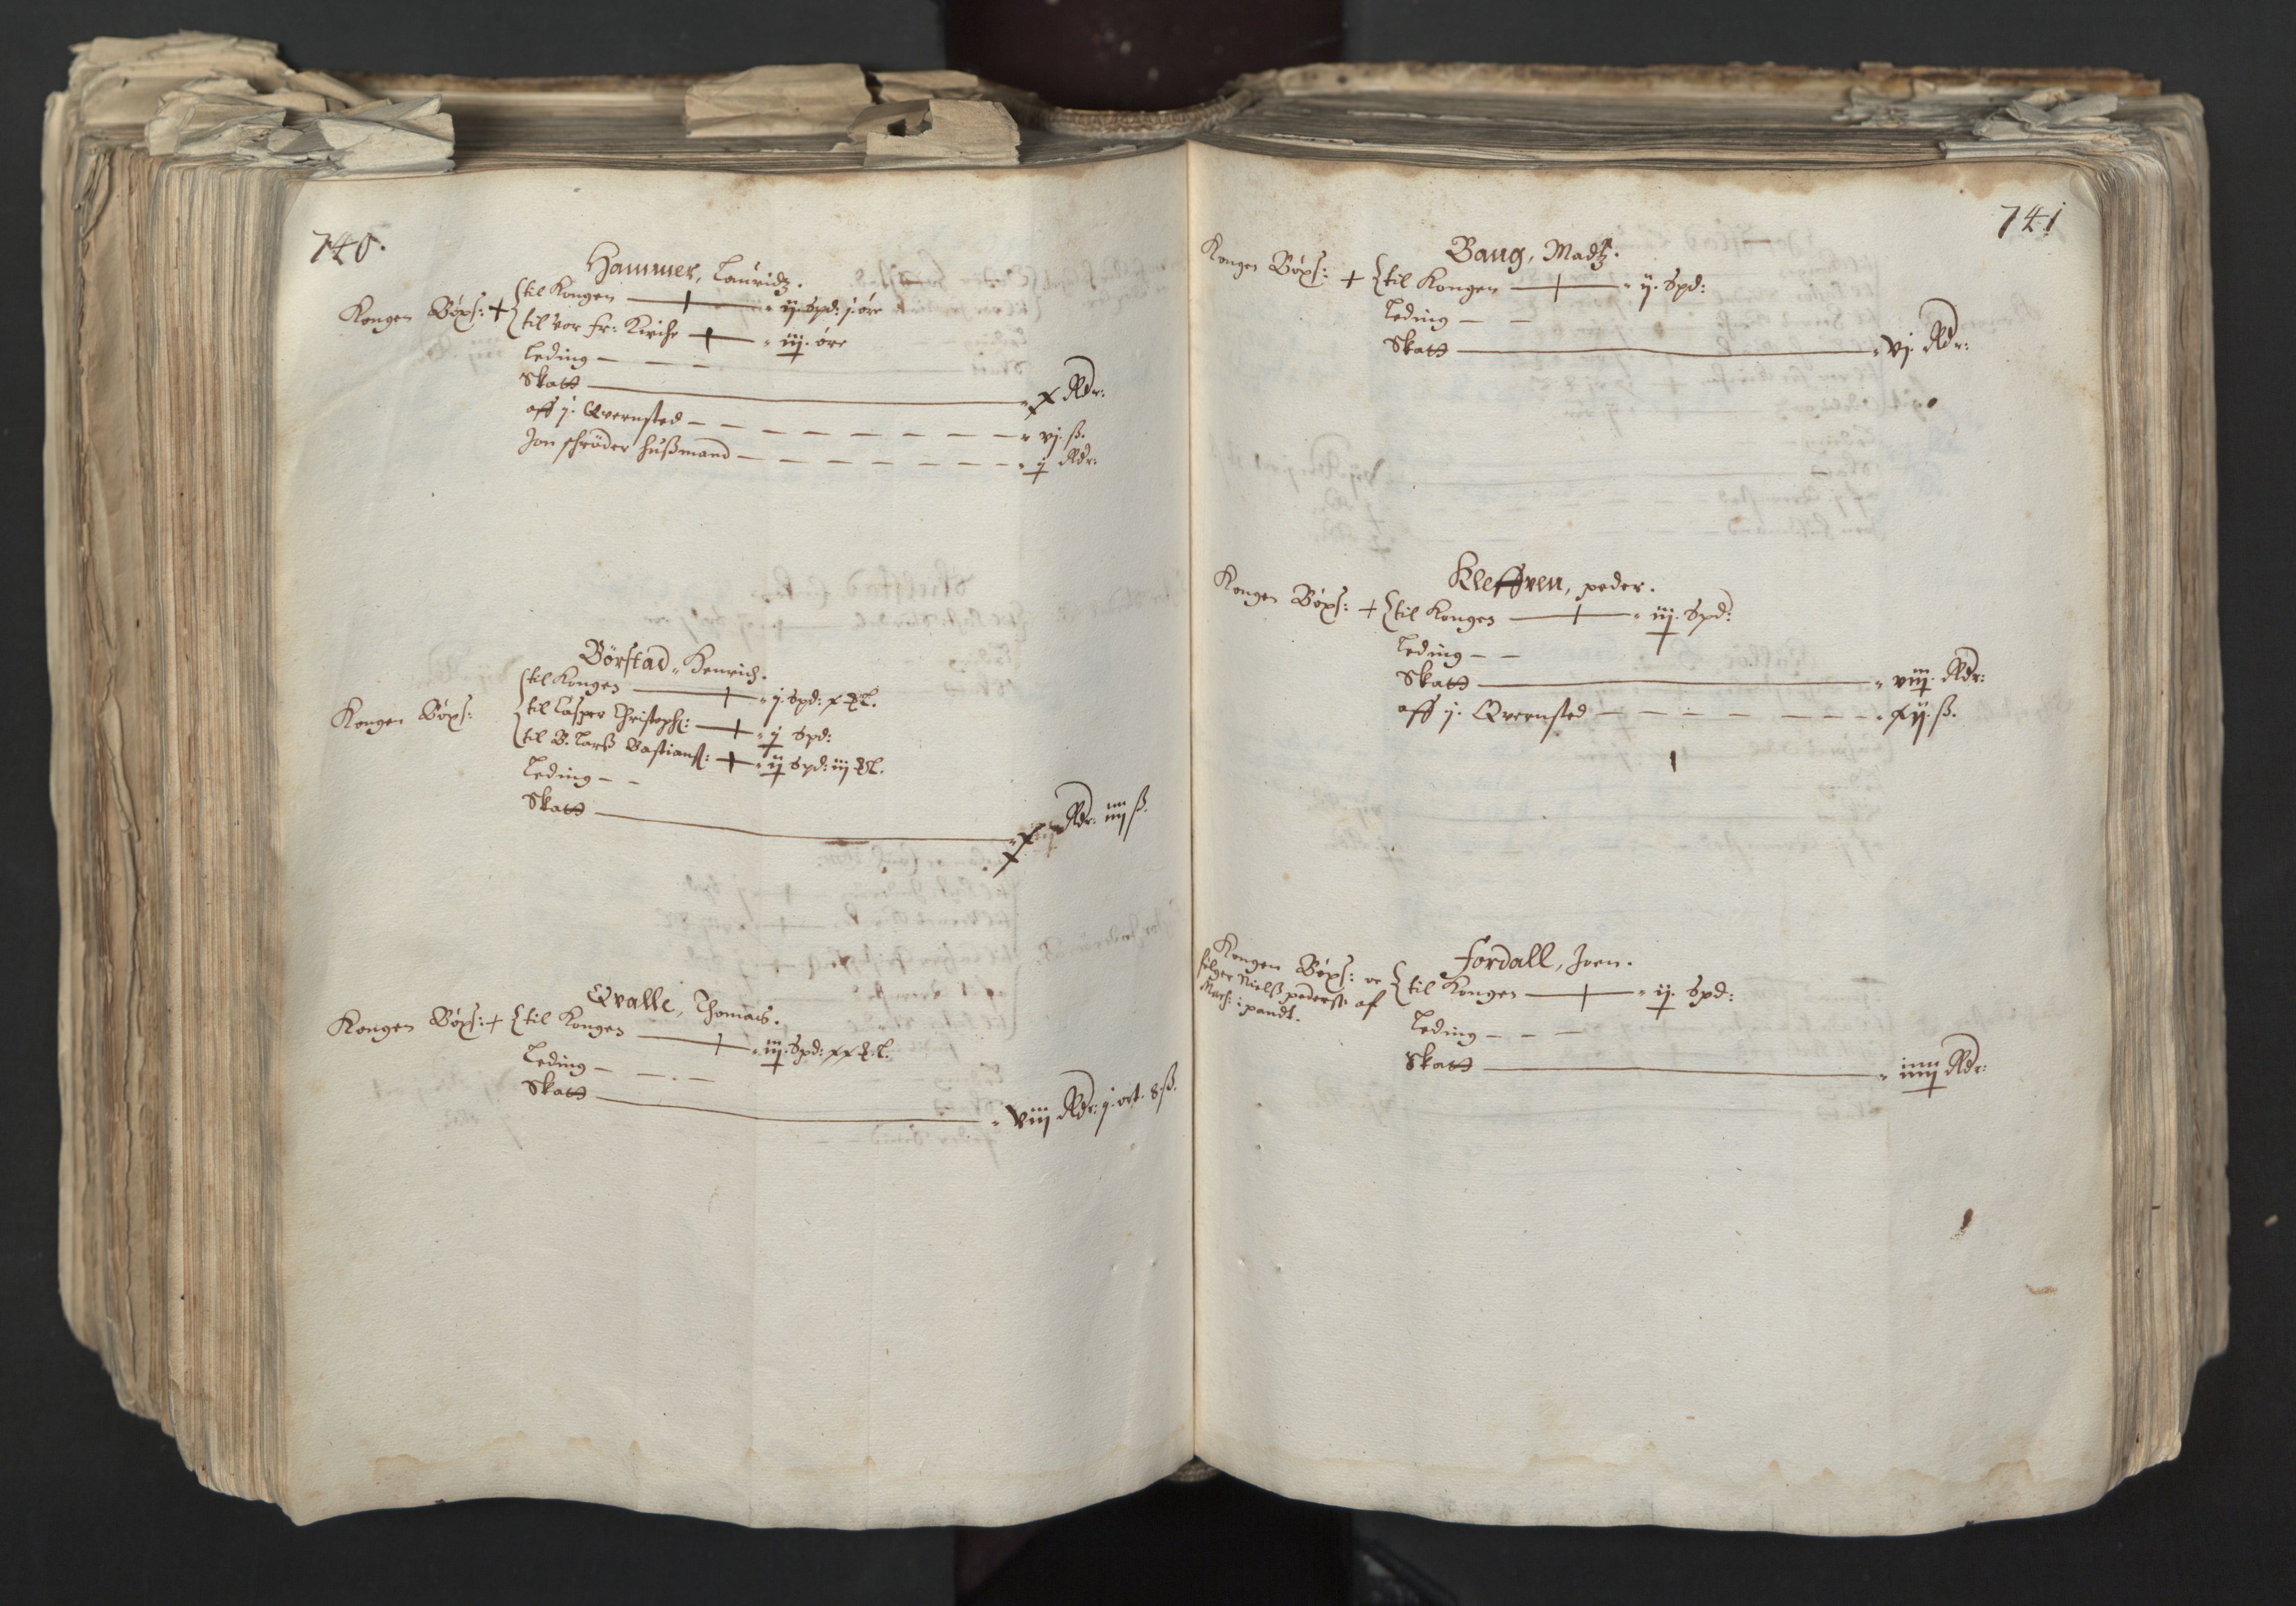 740.
Hammer, Lauridtz.
Kongen Böxs: + til Kongen — ij. Spd: j. øre
til vor fr: Kirche — iij. øre
Leding — — —
Skatt — x Rdr:
aff j. Qvernsted — — — vj. ß.
Jon schröder Hußmand — — — j Rdr:
Börstad, Henrich.
Kongen Böxs: til Kongen — j. Spd: x ℔.
til Casper Christophs: — j Spd:
til B. Larß Bastians: — ij Spd: iij ℔.
Leding — —
Skatt — Rdr: iiij ß.
Qvalle, Thomais.
Kongen Böxs: + til Kongen — iij. Spd: xx ℔.
Leding — — —
Skatt — viij Rdr: j. ort. 8. ß.
741
Baug, Madtz.
Kongen Böxs: + til Kongen — ij. Spd:
Leding — —
Skatt — vj. Rdr:
Kleffven, peder.
Kongen Böxs: + til Kongen — iij. Spd:
Leding — —
Skatt — viij. Rdr:
aff j. Qvernsted — — — xij. ß.
Fordall, Joen.
Kongen Böxs: oc til Kongen — ij. Spd:
følger Nielß pederß: af
Mark: i pandt.
Leding — — —
Skatt — iiij Rdr: